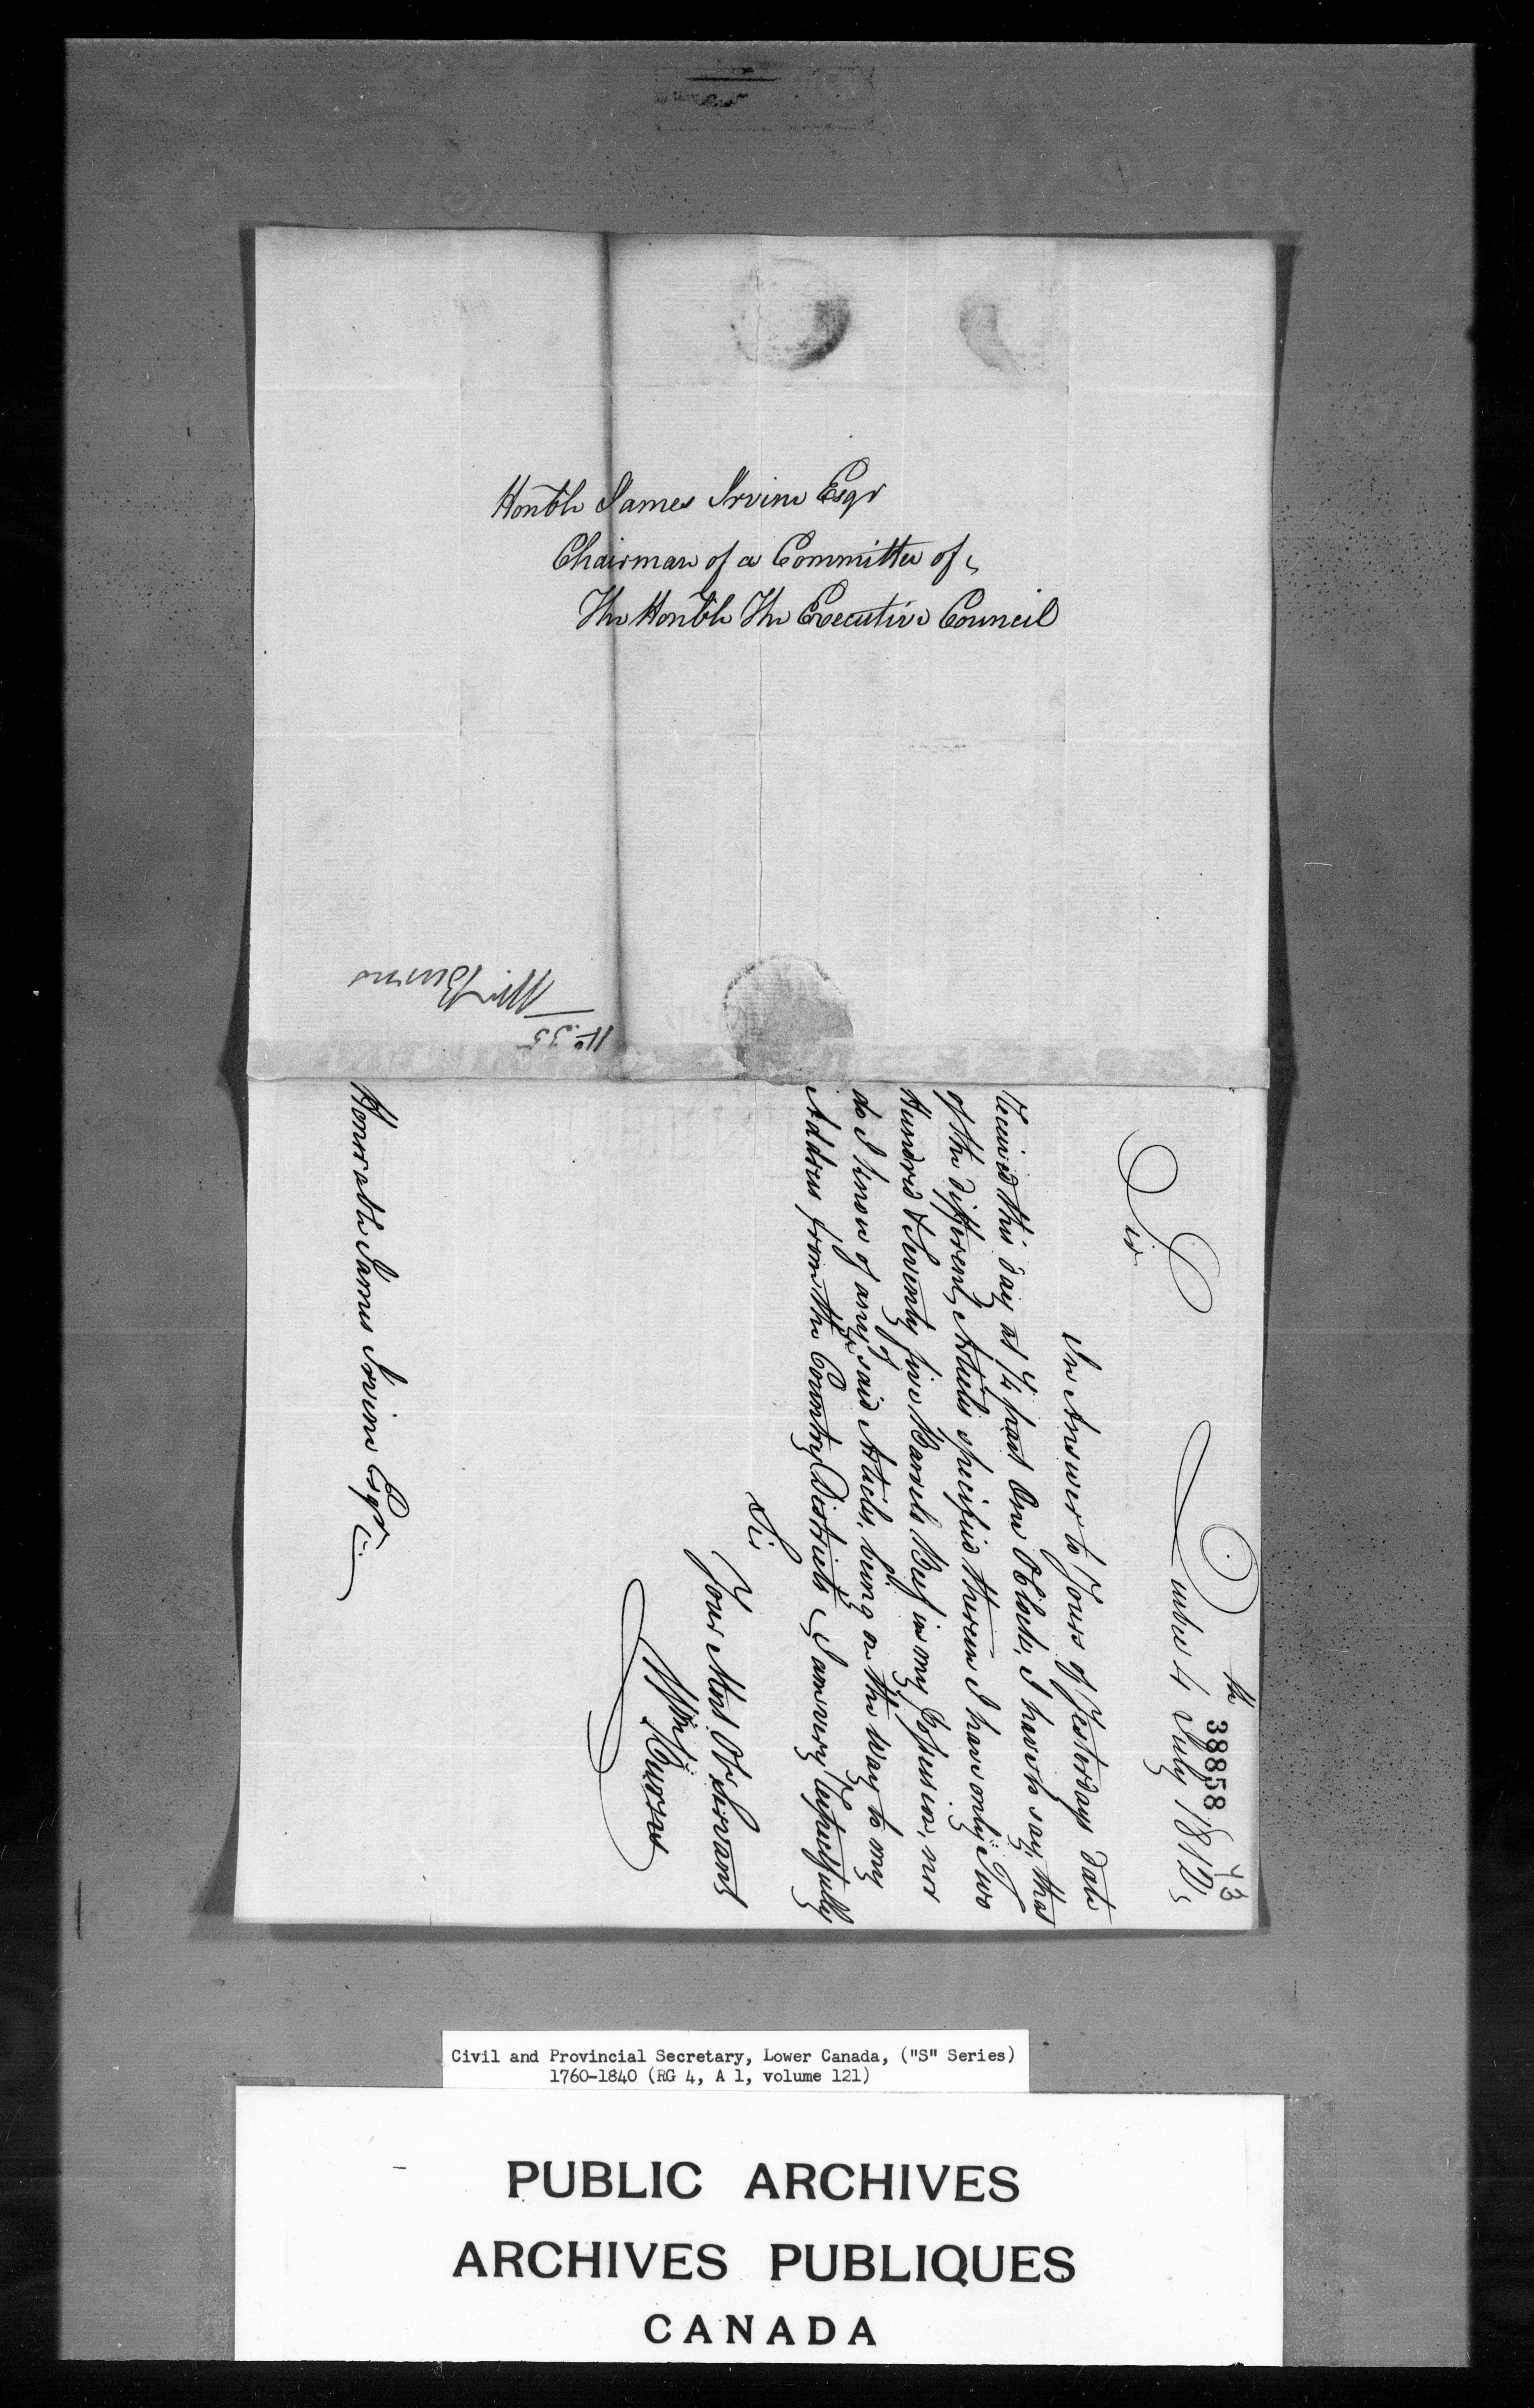 Honble James Irvine Esqr
Chairman of a Committee of
The Honble The Executive Council
No. 35
Mr Burns
38858
43
Quebec 4th July 1812
Sir
In Answer to Yours of Yesterdays date
received this day at 1/4 past One OClock, I have to say, that
of the different Articles specified therein I have only Two
Hundred & Seventy five Barrels Beef in my Possession, nor
do I know of any of ye said Articles, being on the way to my
Address from the Country Districts I am very respectfully
Sir
Your Most Ob Servant
Wm Burns
Honorable James Irvine Esqr
Civil and Provincial Secretary, Lower Canada, ("S" Series)
1760-1840 (RG 4, A 1, volume 121)
PUBLIC ARCHIVES
ARCHIVES PUBLIQUES
CANADA